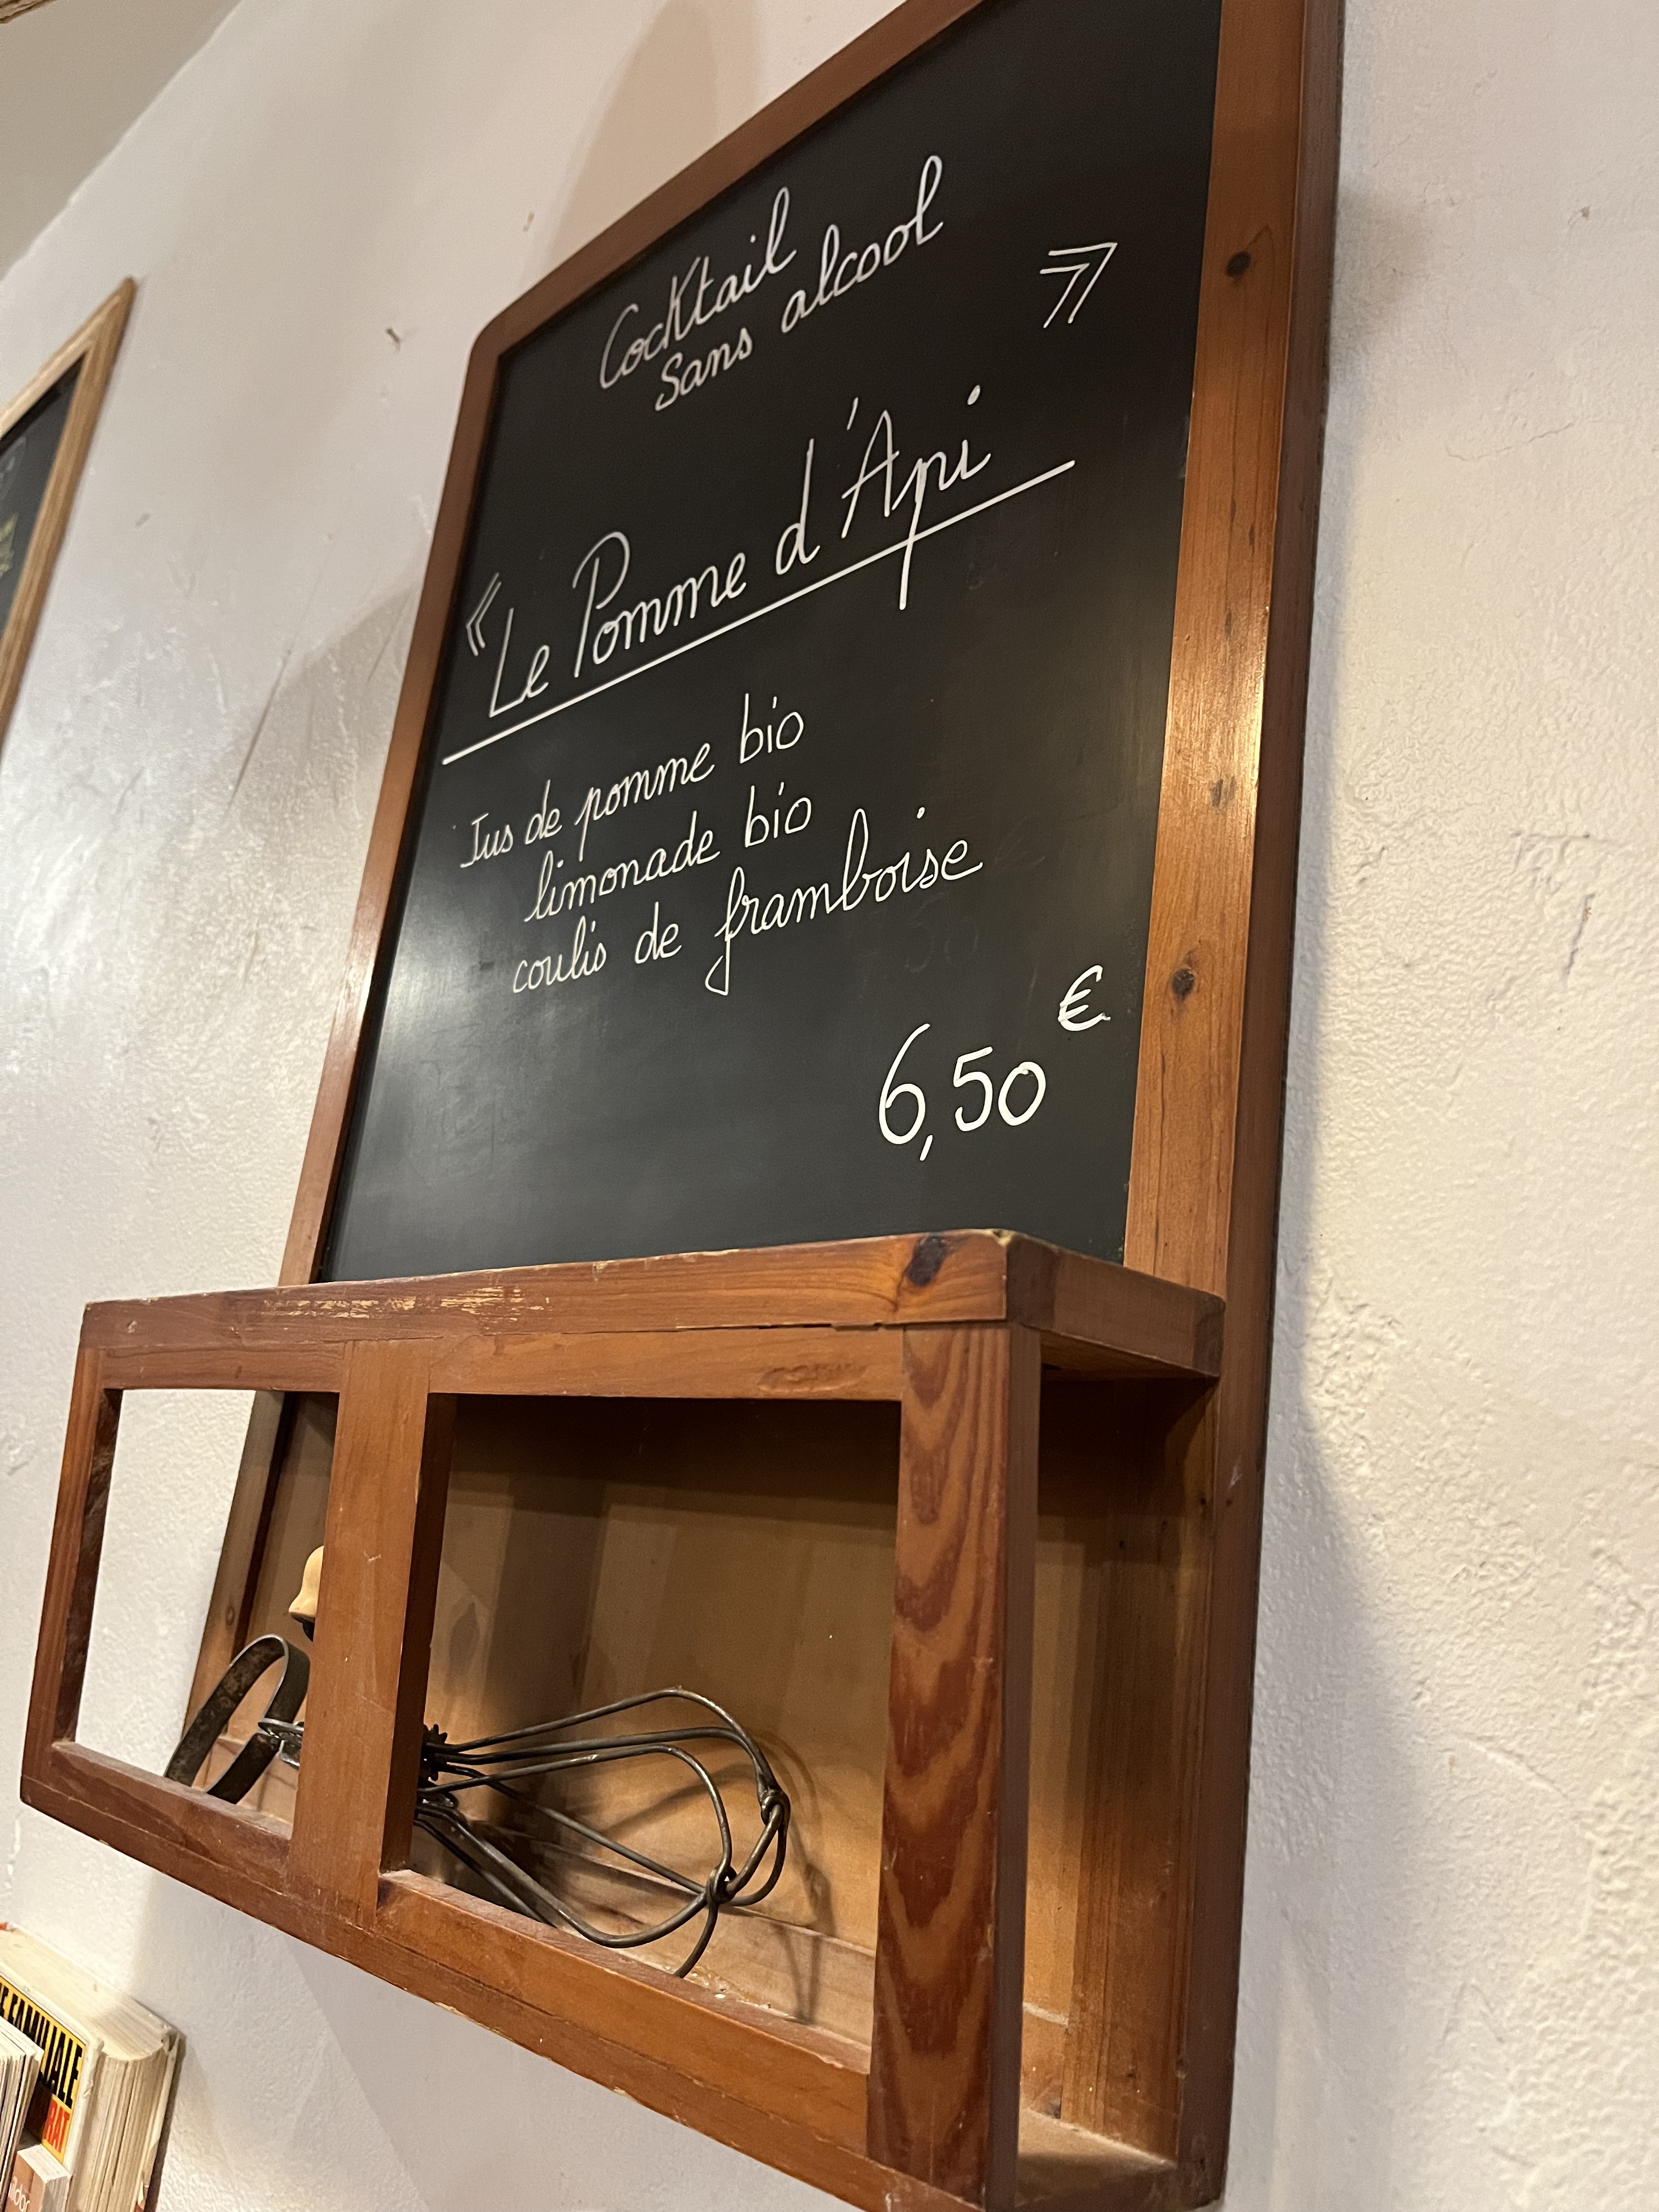 Cocktail
sans alcool
« Le Pomme d'Api »
Jus de pomme bio
limonade bio
coulis de framboise
6,50 €
FAMILIALE